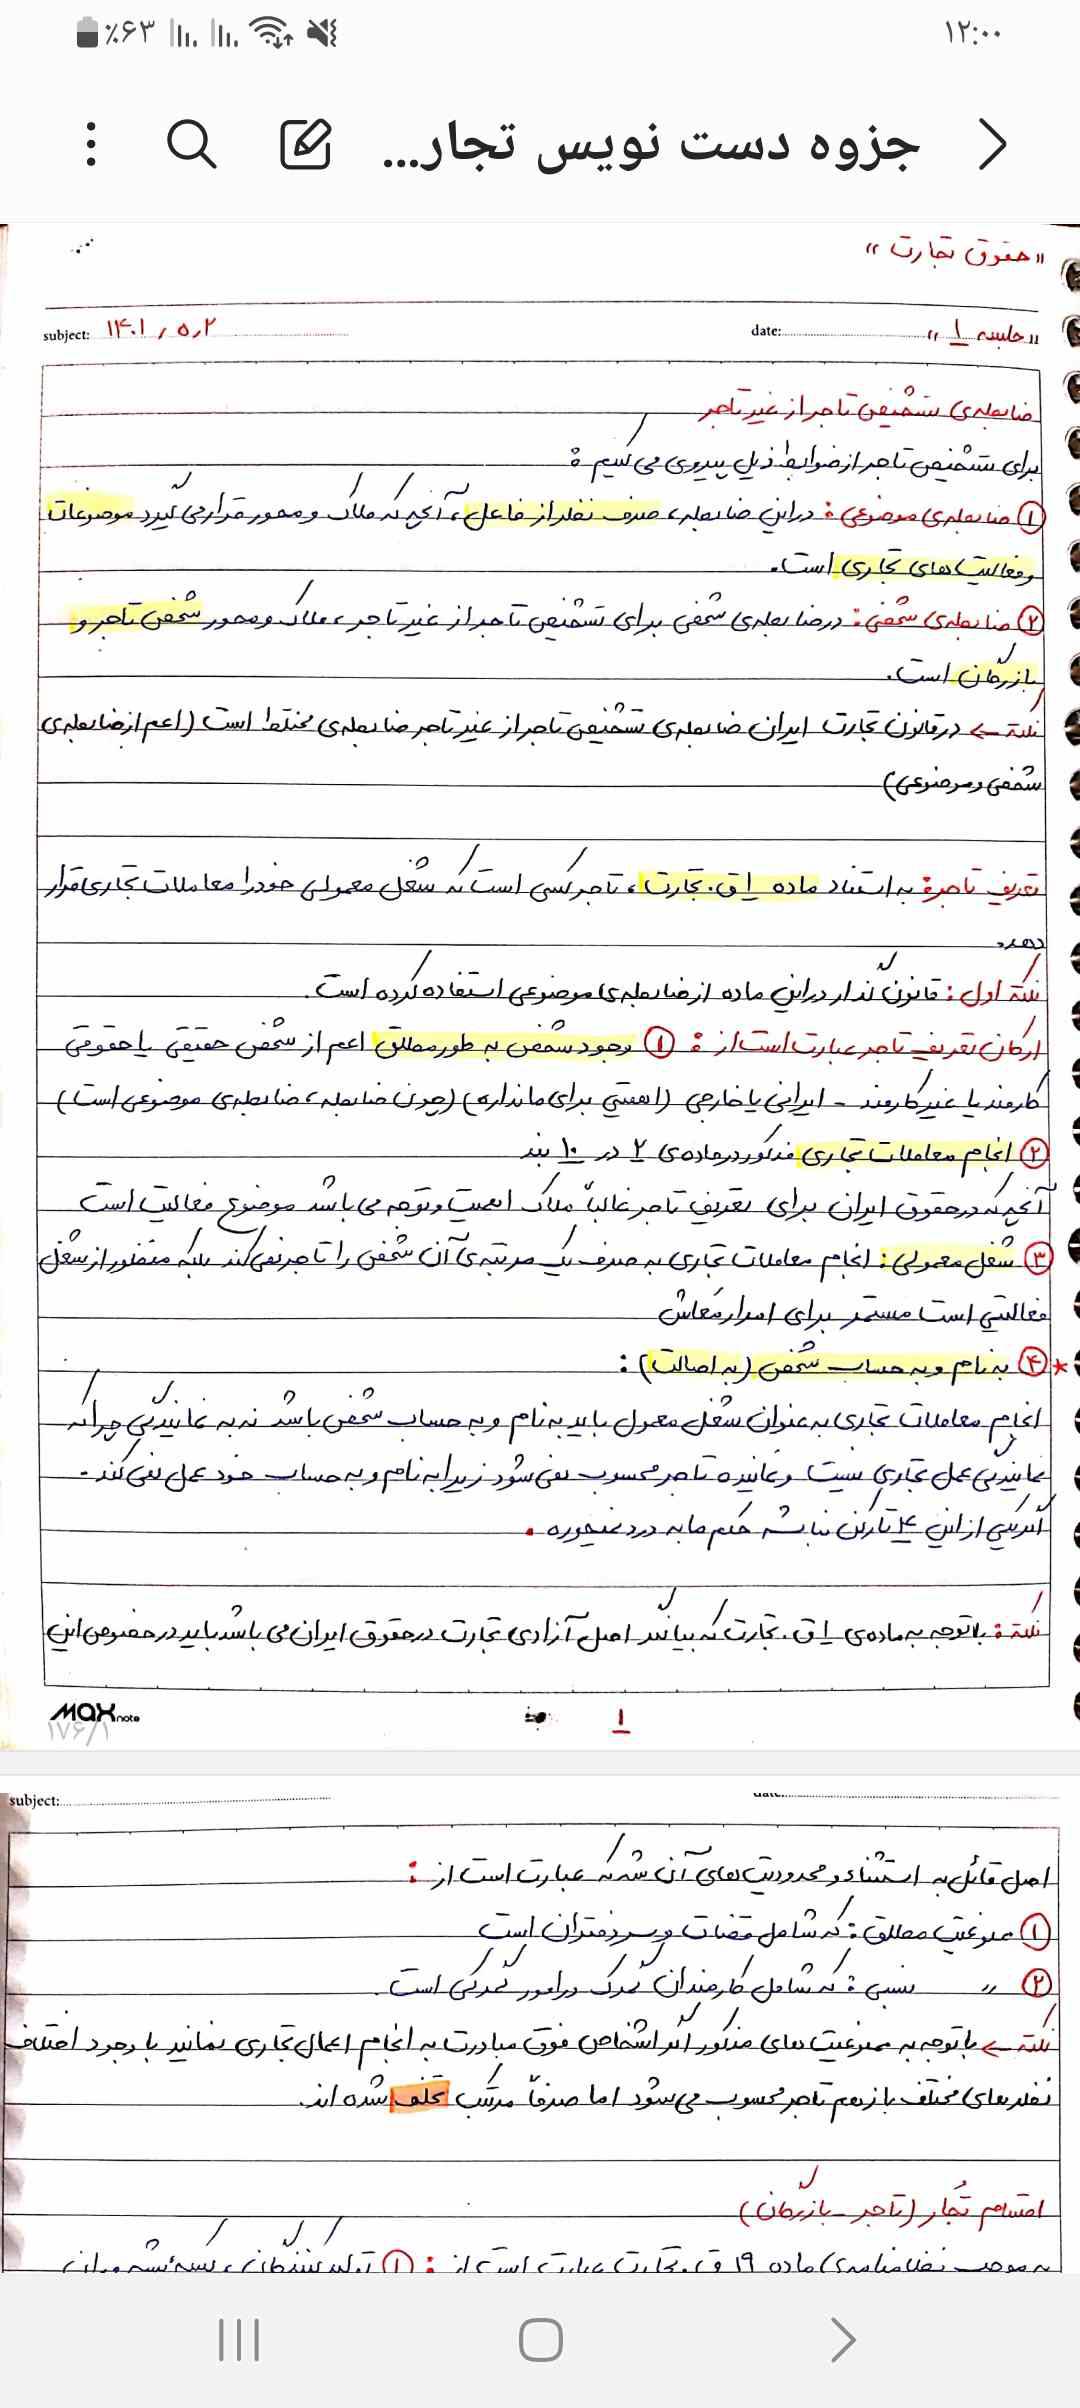 ۱۲:۰۰
٪۶۳
جزوه دست نویس تجار...
«حقوق تجارت»
«جلسه ۱»
date:
subject: ۱۴۰۱/۵/۲
ضابطه‌ی تشخیص تاجر از غیر تاجر
برای تشخیص تاجر از ضوابط ذیل پیروی می کنیم:
① ضابطه‌ی موضوعی: در این ضابطه، صرف نظر از فاعل، آنچه که ملاک و محور قرار می گیرد موضوعات
و فعالیت های تجاری است.
② ضابطه‌ی شخصی: در ضابطه‌ی شخصی برای تشخیص تاجر از غیر تاجر، ملاک و محور شخص تاجر و
بازرگان است.
نکته ← در قانون تجارت ایران ضابطه‌ی تشخیص تاجر از غیر تاجر ضابطه‌ی مختلط است (اعم از ضابطه‌ی
شخصی و موضوعی)
تعریف تاجر: به استناد ماده ۱ ق. تجارت، تاجر کسی است که شغل معمولی خود را معاملات تجاری قرار
دهد.
نکته اول: قانون گذار در این ماده از ضابطه‌ی موضوعی استفاده کرده است.
ارکان تعریف تاجر عبارت است از: ① وجود شخص به طور مطلق اعم از شخص حقیقی یا حقوقی
کارمند یا غیر کارمند - ایرانی یا خارجی (اهمیتی برای ما نداره) (چون ضابطه، ضابطه‌ی موضوعی است)
② انجام معاملات تجاری مذکور در ماده‌ی ۲ در ۱۰ بند
آنچه که در حقوق ایران برای تعریف تاجر غالباً ملاک اهمیت و توجه می باشد موضوع فعالیت است
③ شغل معمولی: انجام معاملات تجاری به صرف یک مرتبه‌ی آن شخص را تاجر نمی کند بلکه منظور از شغل
فعالیتی است مستمر برای امرار معاش
* ④ به نام و به حساب شخص (به اصالت):
انجام معاملات تجاری به عنوان شغل معمول باید به نام و به حساب شخص باشد نه به نمایندگی چرا که
نمایندگی عمل تجاری نیست و نماینده تاجر محسوب نمی شود زیرا به نام و به حساب خود عمل نمی کند.
اگر یکی از این ۴ تا رکن نباشه حکم ما به درد نمیخوره.
نکته: با توجه به ماده‌ی ۱ ق. تجارت که بیانگر اصل آزادی تجارت در حقوق ایران می باشد باید در خصوص این
MAX note
۱
۱۷۶/۱
subject:
date:
اصل قائل به استثناء و محدودیت های آن شد که عبارت است از:
① ممنوعیت مطلق: که شامل قضات و سردفتران است
② 〃 نسبی: که شامل کارمندان گمرک در امور گمرکی است.
نکته ← با توجه به ممنوعیت های مذکور اگر اشخاص فوق مبادرت به انجام اعمال تجاری نمایند با وجود اختلاف
نظرهای مختلف باز هم تاجر محسوب می شود اما صرفاً مرتکب تخلف شده اند.
اقسام تُجار (تاجر - بازرگان)
به موجب نظامنامه‌ی ماده ۱۹ ق. تجارت عبارت است از: ①